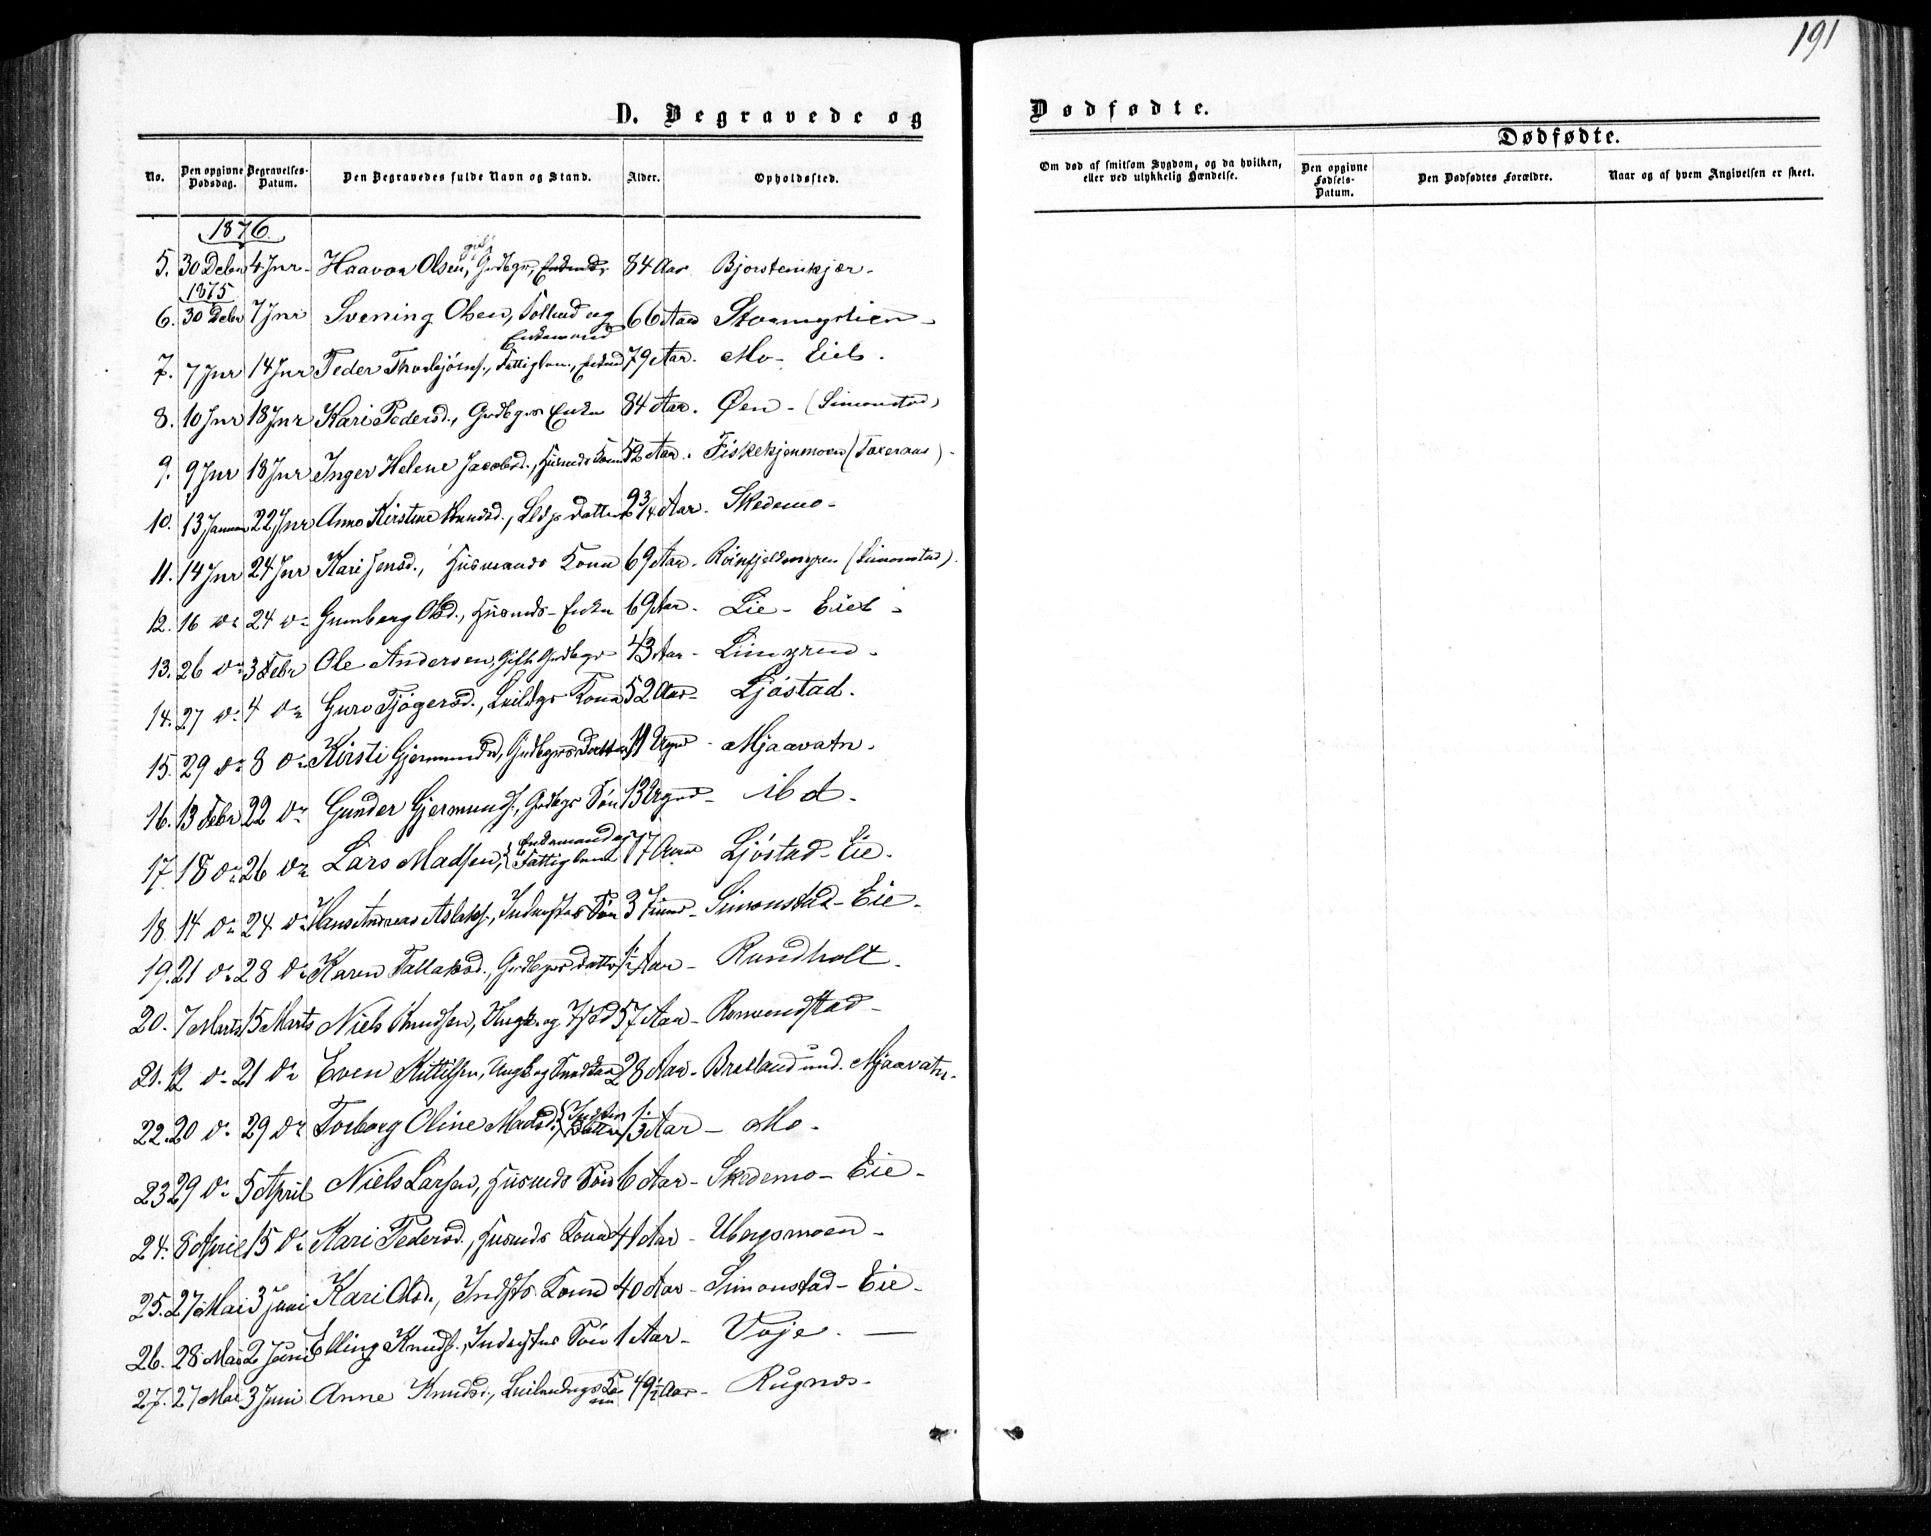 191
D. Begravede og Dødfødte.
Dødfødte.
No. Den opgivne Dødsdag. Begravelses-Datum. Den Begravedes fulde Navn og Stand. Alder. Opholdssted. Om død af smitsom Sygdom, og da hvilken, eller ved ulykkelig Hændelse. Den opgivne Fødsels-Datum. Den Dødfødtes Forældre. Naar og af hvem Angivelsen er skeet.
1876.
5. 30 Debr 4 Jnr Haavor Olsen, Grdbgr, 84 Aar Bjorsteinkjær
1875
6. 30 Debr 7 Jnr Svening Olsen, og Enkemand 66 Aar
7. 7 Jnr 14 Jnr Peder Thorbjörns., Fattiglem, Enkmd 79 Aar. Mo Eiet.
8. 10 Jnr 18 Jnr Kari Pedersd., Grdbgrs Enke 84 Aar. Øen (Simonstad)
9. 9 Jnr 18 Jnr Inger Helene Jacobsd., Husmds Kone 52 Aar. Fiskekjenmoen
10. 13 Januar 22 Jnr Anne Kirstine Knudsd., Datter 2 3/4 Aar. Skedemo
11. 14 Jnr 24 Jnr Kari Jensd., Husmands Kone 69 Aar. Röinfjeldmyren (Simonstad).
12. 16 do 24 do Gunborg Olsd., Husmds Enke 69 Aar. Lie Eiet
13. 26 do 3 Febr Ole Andersen, Gift Grdbgr 43 Aar Limyren
14. 27 do 4 do Guro Tjögersd., Kone 52 Aar Ljöstad.
15. 29 do 8 do Kirsti Gjermundsd, Grdbgrs Datter 11 Uger Mjaavatn.
16. 13 Febr 22 do Gunder Gjermunds., Grdbgr Sön 13 Uger ibd.
17. 18 do 26 do Lars Madsen, Enkemand og Fattiglem 77 Aar Ljöstad Eie.
18. 14 do 24 do Hans Andreas Aslaks., Inderstes Sön 3 Timer Simonstad Eie.
19. 21 do 28 do Karen Tallaksd., Grdbgrs Datter 1/2 Aar Rundholt
20. 7 Marts 15 Marts Niels Knudsen, Ungk. og 57 Aar
21. 12 do 21 do Even Kittilsen, Ungk og 28 Aar Bratland und. Mjaavatn.
22. 20 do 29 do Torborg Oline Madsd., Datter 1/3 Aar Mo.
23. 29 do 5 April Niels Larsen, Husmds Sön 6 Aar Skedemo Eie
24. 8 April 15 do Kari Pedersd., Husmds Kone 41 Aar Ubergsmoen
25. 27 Mai 3 Juni Kari Olsd., Indsts Kone 40 Aar Simonstad Eie.
26. 28 Mai 2 Juni Elling Knuds., Inderstes Sön 1 Aar Voje.
27. 27 Mai 3 Juni Anne Knudsd., Kone 49 1/2 Aar Rugnes